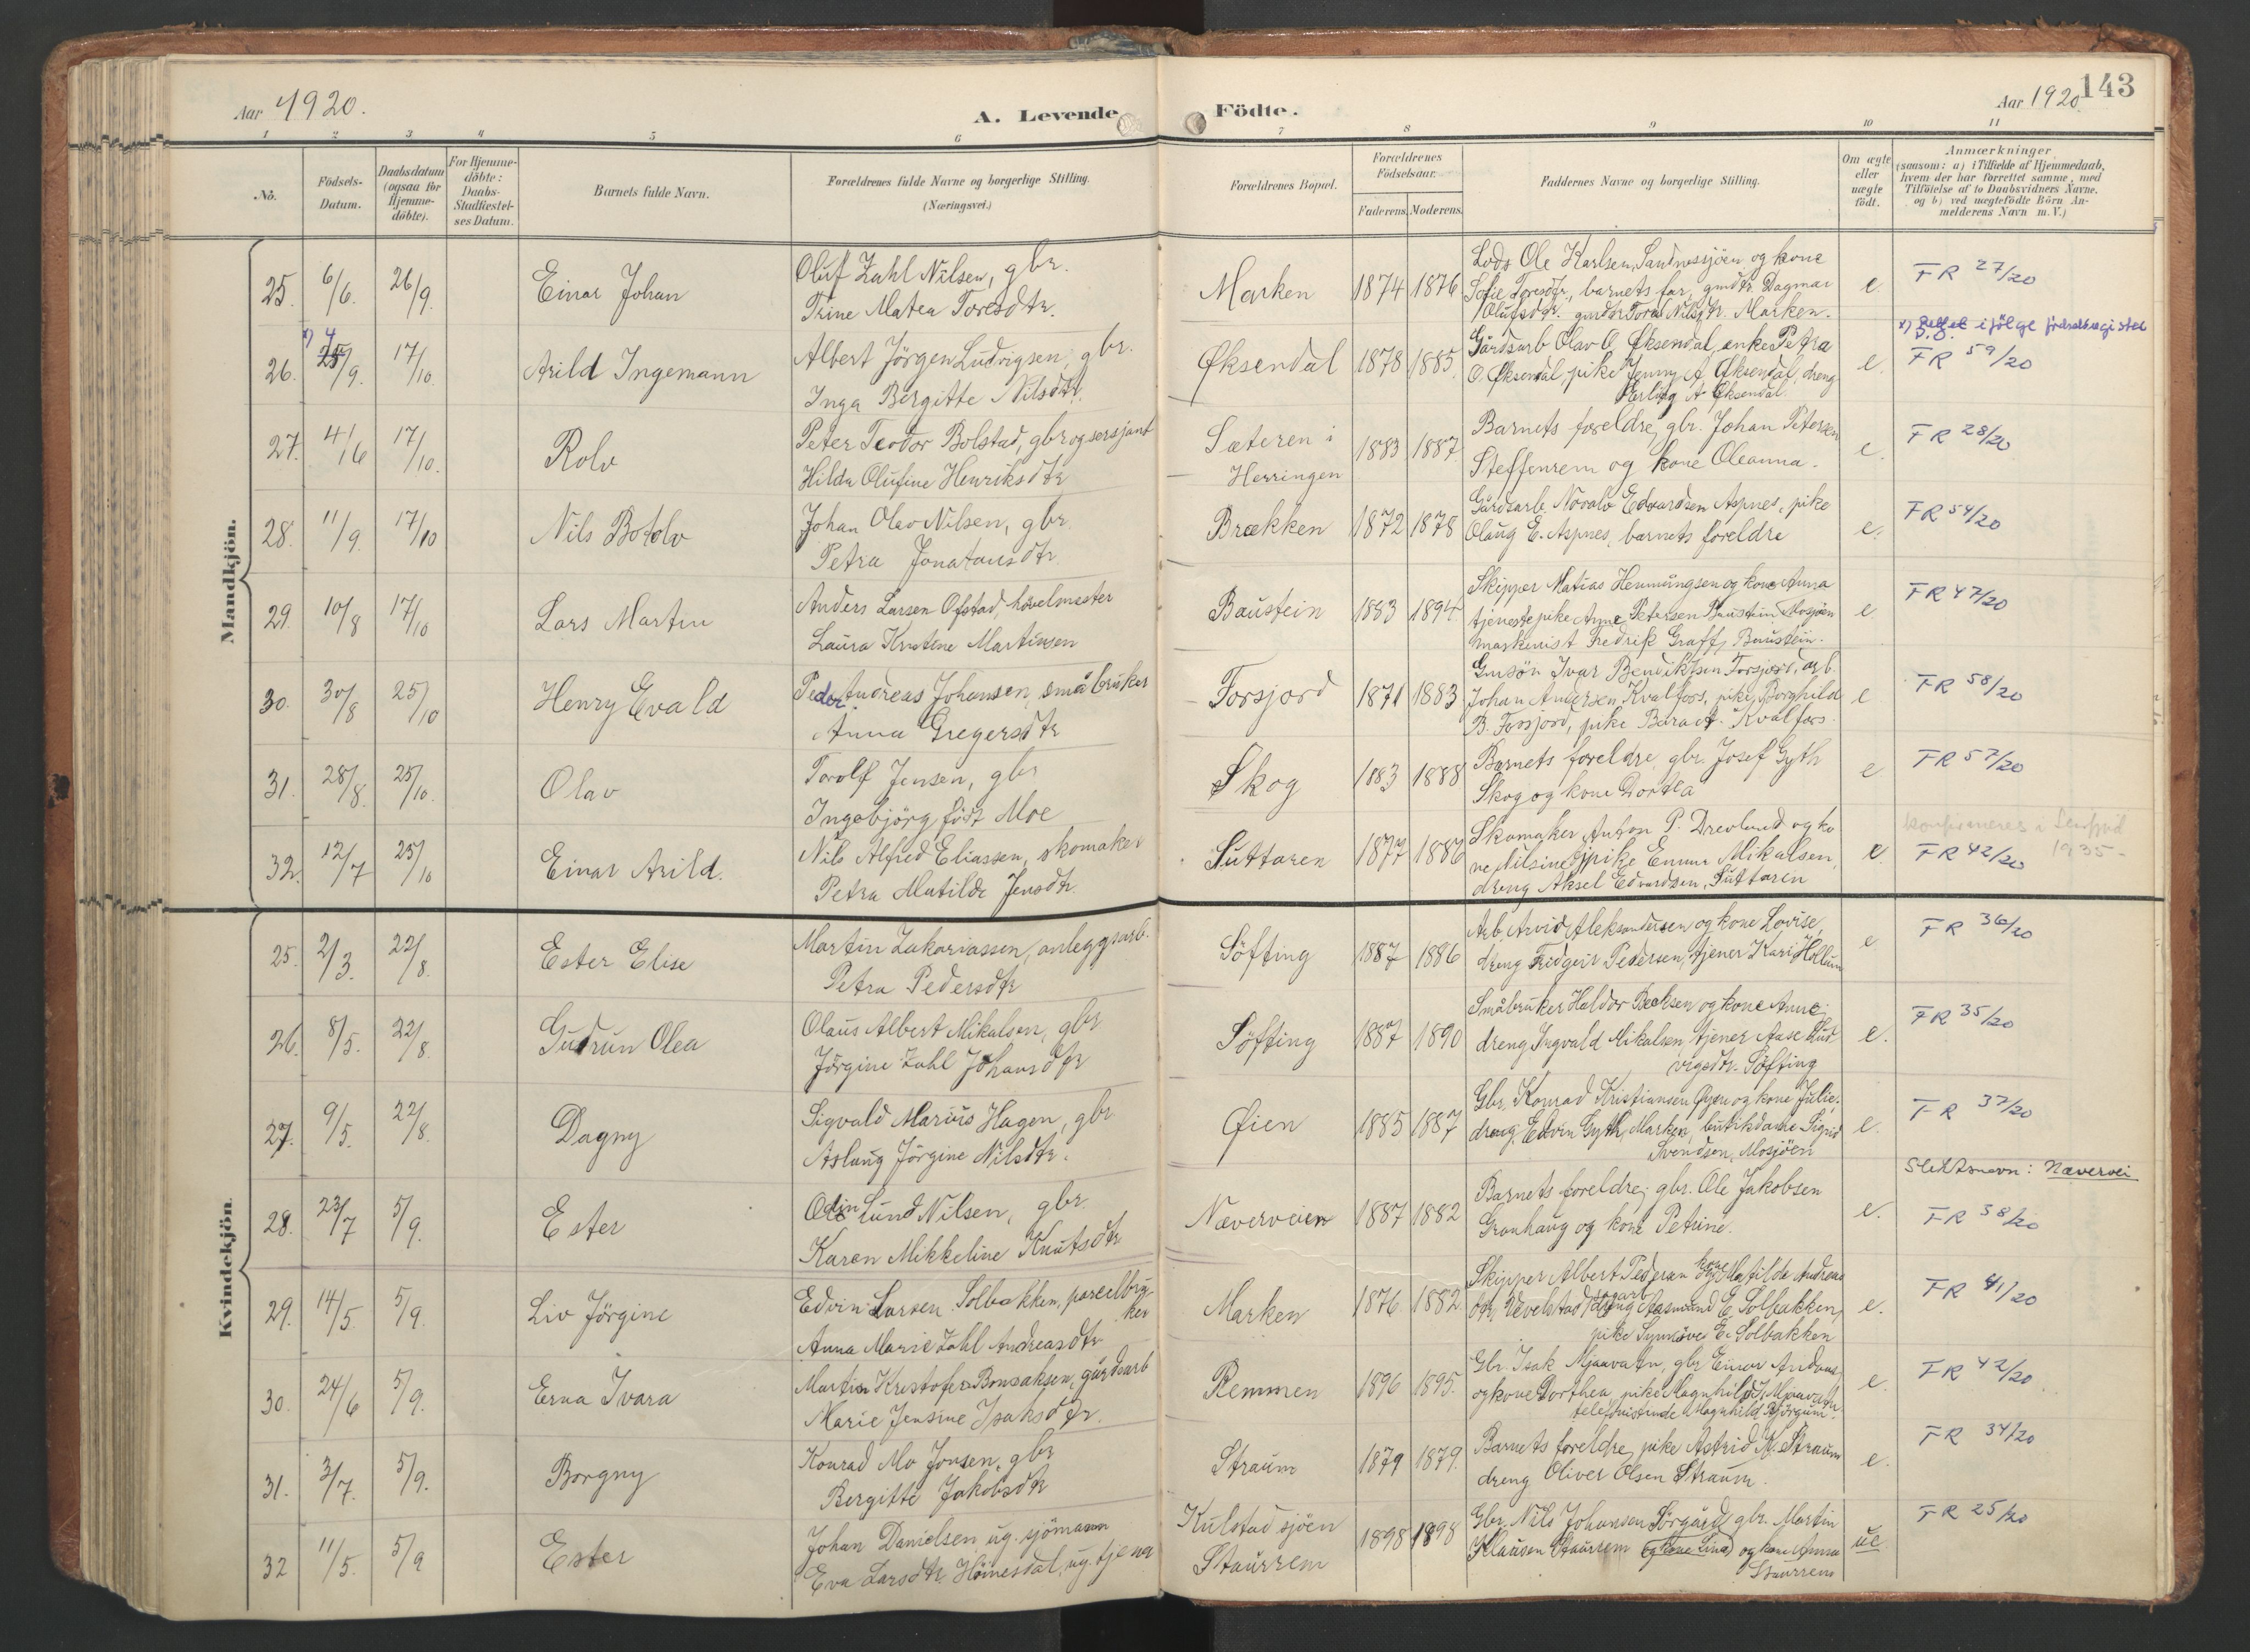 Aar 1920.
A. Levende
Födte.
Aar 1920
143
1 2 3 4 5 6 7 8 9 10 11
No.
Födsels-
Datum.
Daabsdatum
(ogsaa for
Hjemme-
döbte).
For Hjemme-
döbte:
Daabs-
Stadfæstel-
ses Datum.
Barnets fulde Navn.
Forældrenes fulde Navne og borgerlige Stilling.
(Næringsvei.)
Forældrenes Bopæl.
Forældrenes
Födselsaar.
Faderens. Moderens.
Faddernes Navne og borgerlige Stilling.
Om ægte
eller
uægte
födt.
Anmærkninger
(saasom: a) i Tilfælde af Hjemmedaab,
hvem der har forrettet samme, med
Tilföielse af to Daabsvidners Navne.
og b) ved uægtefödte Börn An-
melderens Navn m. V.)
Mandkjön.
25. 6/6. 26/9. Einar Johan
Oluf Zahl Nilsen, gbr.
Trine Matea Toresdtr.
Marken 1874 1876
Lods Ole Karlsen, Sandnessjöen og kone
Sofie Toresdtr., barnets far, gmdtr. Dagmar
Olufsdtr. gmdtr Tora Nilsdtr. Marken.
e. FR 27/20
x) Rettet ifölge födselsregistee
26. x) 4 25/9. 17/10. Arild Ingemann
Albert Jörgen Ludvigsen, gbr.
Inga Bergitte Nilsdtr.
Øksendal 1878 1885.
Gårdsarb Olav O. Øksendal, enke Petra
O. Øksendal, pike Jenny A Øksendal, dreng
Erling A Øksendal.
e. FR 59/20
27. 4/6 17/10. Rolv
Peter Teodor Bolstad, gbr og sersjant
Hilda Olufine Henriksdtr
Sæteren i
Herringen
1883 1887
Barnets foreldre, gbr. Johan Petersen
Steffenrem og kone Oleanna.
e. FR 28/20
28. 11/9. 17/10 Nils Botolv
Johan Olav Nilsen, gbr.
Petra Jonatansdtr.
Brækken 1872 1878
Gårdsarb. Noralv Edvardsen Aspnes, pike
Olaug E. Aspnes, barnets foreldre
e. FR 54/20
29. 10/8 17/10 Lars Martin
Anders Larsen Ofstad, hövelmester
Laura Kristine Martinsen
Baustein 1883 1894.
Skipper Matias Hemmingsen og kone Anna
tjenestepike Anne Petersen Baustein, Mosjöen
maskinist Fredrik Graff, Baustein.
e. FR 47/20
30. 30/8 25/10 Henry Evald
Peder Andreas Johansen, småbruker
Anna Gregersdtr
Forsjord 1871 1883
Gmsön Ivar Bendiktsen Forsjord, arb.
Johan Andersen Kvalfors, pike Borghild
B. Forsjord, pike Bara A. Kvalfors.
e FR 58/20
31. 28/8. 25/10. Olav
Torolf Jensen, gbr
Ingebjörg födt Moe
Skog 1883 1888
Barnets foreldre, gbr. Josef Gyth
Skog og kone Dortea
e FR 57/20
konfirmeres i
1935-
32. 12/7 25/10 Einar Arild.
Nils Alfred Eliassen, skomaker
Petra Matilde Jensdtr.
Luttaren 1877 1886
Skomaker Anton P. Drevland og ko
ne Nilsine, pike Emma Mikalsen,
dreng Aksel Edvardsen, Luttaren
e. FR 42/20
Kvindekjön.
25. 2/3. 22/8. Ester Elise
Martin Zakariassen, anleggsarb.
Petra Pedersdtr
Söfting 1887 1886
Arb. Arvid Aleksandersen og kone Lovise,
dreng Fridgeir Pedersen, tjener Kari Hollum
e FR 36/20
26. 8/5. 22/8. Gudrun Olea
Olaus Albert Mikalsen, gbr
Jörgine Zahl Johansdtr
Söfting 1887 1890
Småbruker Haldor Becksen og kone Anne;
dreng Ingvald Mikalsen, tjener Aase Lud-
vigsdtr. Söfting
e. FR 35/20
27. 9/5. 22/8. Dagny
Sigvald Marius Hagen, gbr
Aslaug Jörgine Nilsdtr.
Øien 1885 1887
Gbr. Konrad Kristiansen Øyen og kone Julie,
dreng Edvin Gyth, Marken, butikdame Sigrid
Svendsen, Mosjöen
e. FR 37/20
Slektsnavn: Nævervei
28. 23/7 5/9. Ester
Odin Lund Nilsen, gbr.
Karen Mikkeline Knutsdtr
Næverveien 1887 1882
Barnets foreldre, gbr. Ole Jakobsen
Granhaug og kone Petrine.
e. FR 38/20
29. 14/5. 5/9. Liv Jörgine
Edvin Larsen Solbakken, parcelbru-
ker
Anna Marie Zahl Andreasdtr
Marken 1876 1882
Skipper Albert Pedersen og kone Matilde Andreas
dtr, Vevelstad, dreng Aasmund E. Solbakken,
pike Synnöve E. Solbakken
e. FR 41/20
30. 24/6 5/9. Erna Ivara
Martin Kristofer Bonsaksen, gårdsarb
Marie Jensine Isaksdtr.
Remmen 1896 1895.
Gbr. Isak Mjaavatn, gbr Einar Andaas
og kone Dorthea, pike Magnhild I. Mjaavatn
telefonistinde Magnhild Björgum.
e. FR 42/20
31. 3/7. 5/9. Borgny
Konrad Mo Jonsen, gbr
Bergitte Jakobsdtr
Straum 1879 1879.
Barnets foreldre, pike Astrid K. Straum
dreng Oliver Olsen Straum.
e. FR 34/20
32 11/5. 5/9 Ester
Johan Danielsen, ug. sjömann
Eva Larsdtr. Hömesdal, ug. tjener
Kulstadsjöen
Staurrem
1898 1898
Gbr. Nils Johansen Sörgård, gbr. Martin
Klausen Staurrem og kone Lina og kone Anna
Staurrem
ue. FR 25/20